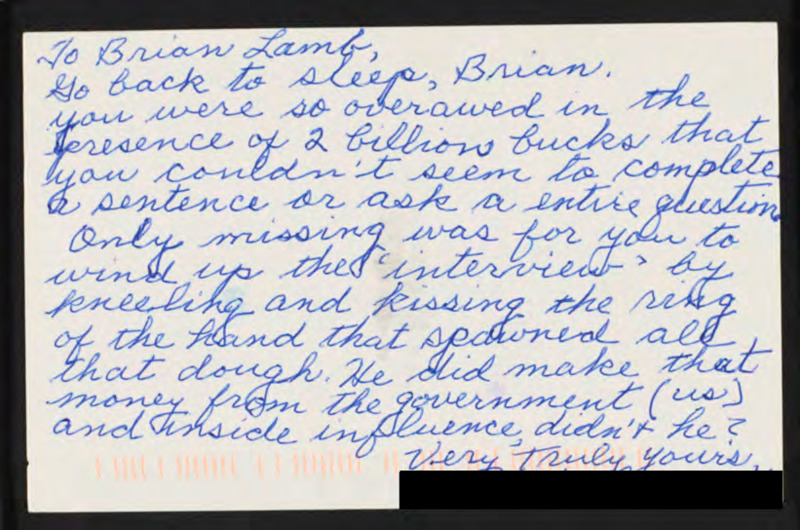 To Brian Lamb,
Go back to sleep, Brian.
you were so overawed in the
presence of 2 billion bucks that
you couldn't seem to complete
a sentence or ask a entire question
Only missing was for you to
wind up the 'interview' by
kneeling and kissing the ring
of the hand that spawned all
that dough. He did make that
money from the government (us)
and inside influence, didn't he?
Very truly yours,